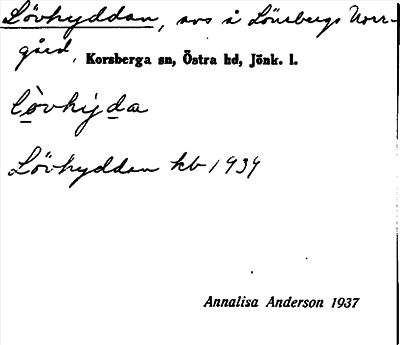 Lövhyddan, avs å Lönebergs Norr-
gård, Korsberga sn, Östra hd, Jönk. l.
lòvhyda
Lövhyddan kb 1934
Annalisa Anderson 1937